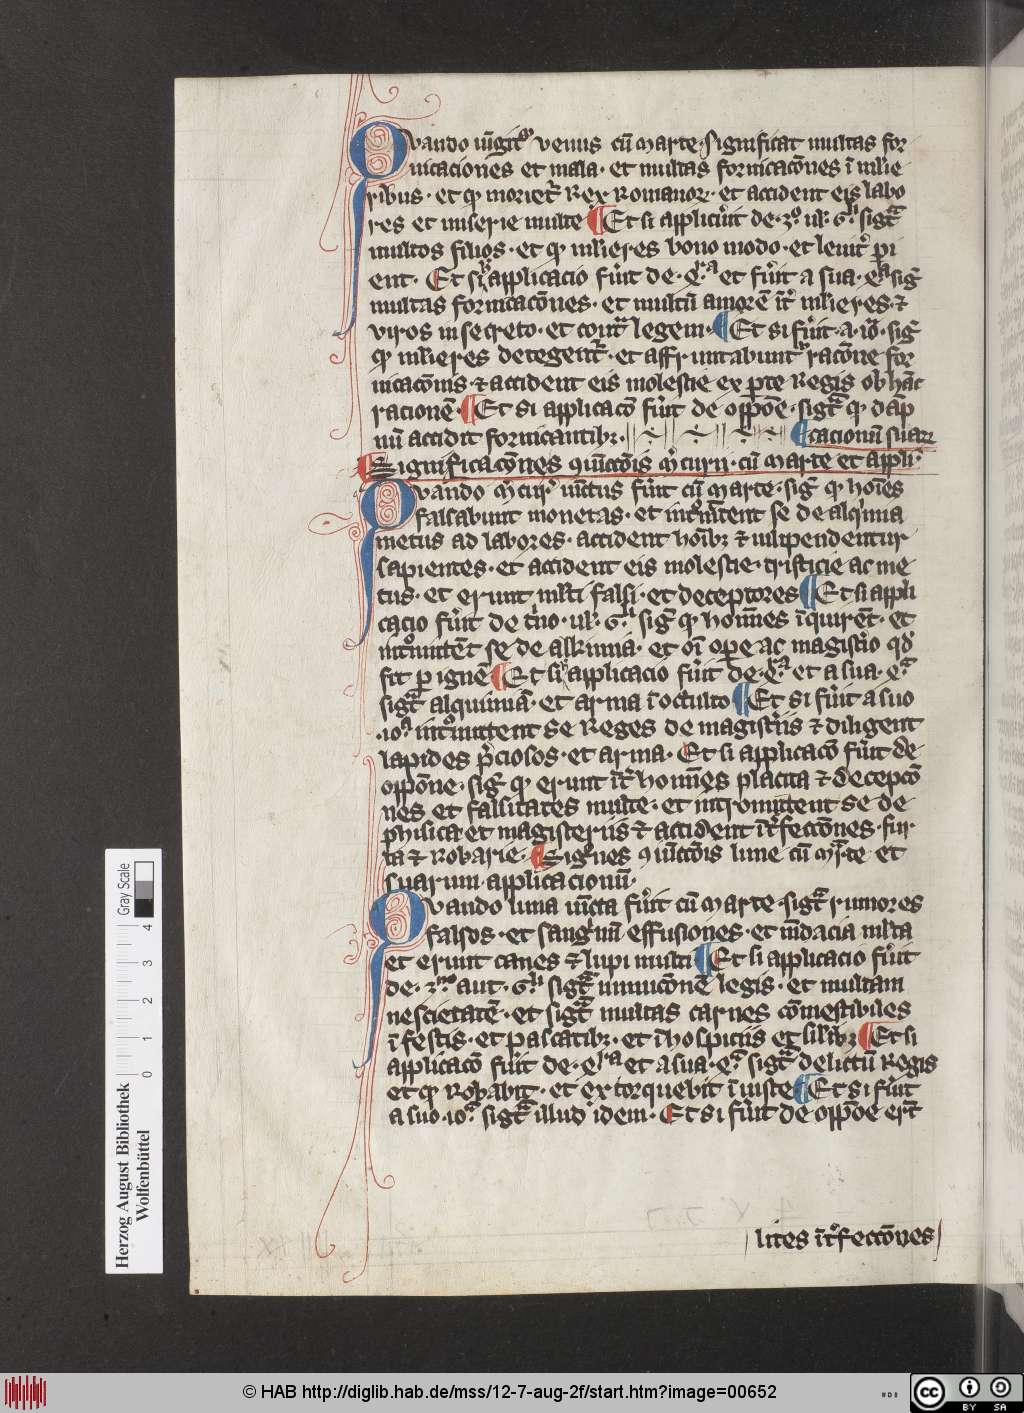 Quando iũgit᷑ venus cũ marte · significat multas for
nicaciones et mala · et multas fornicacõnes ĩ mĺie
ribus · et qꝫ moriet᷑ Rex Romanoꝝ · et accident eis labo
res et miserie multe ¶ Et si applicũit de · 3º · uĺ · 6ᵗⁱ · sigt᷑
multos filios · et qꝫ mĺieres bono modo · et leuit᷑ pi
ent · Et si applicacio fũit de · qᵗᵃ et fũit a sua · qᵗᵃ sig᷑
multas fornicacõnes · et multũ amorẽ ĩt᷑ mĺieres · ⁊
viros in secreto · et cont᷑ legem · ¶ Et si fũit · a · iõ · sig᷑
qꝫ mĺieres detegent᷑ · et affruntabunt᷑ racõne for
nicacõnis · ⁊ accident eis molestie ex ꝑte Regis ob hãc
racionẽ · ¶ Et si applicacõ fũit de oppõe · sigt᷑ qꝫ dãp
nũ accidit fornicantibꝫ · ¶ cacionũ suaꝝ
Significacõnes ꝯiũctõis m̃curii · cũ marte et appli
Quando m̃cur᷑ iũctus fũit cũ marte · sig᷑ qꝫ hoĩes
falsabunt monetas · et int᷑mitent se de alqimia
metus ad labores · accident hoĩbꝫ ⁊ uilipendentur
sapientes · et accident eis molestie · tristicie ac me
tus · et erunt mĺti falsi · et deceptores ¶ Et si appli
cacio fũit de t̾no · uĺ · 6ᵗⁱ · sig᷑ qꝫ homĩes ĩquirẽt · et
int᷑mittẽt se de alkimia · et oĩ oꝑe ac magist̾io qđ
fit ꝑ ignẽ ¶ Et si applicacio fũit de · qᵗᵃ · et a sua · qᵃ
sigt᷑ alquimiã · et arma ĩ occulto ¶ Et si fũit a suo
· ioᵃ · int᷑mittent se Reges de magist̾iis ⁊ diligent
lapides p̃ciosos · et arma · Et si applicacõ fũit de
oppõne · sig᷑ qꝫ erunt ĩt᷑ homĩes placita ⁊ decepcõ
nes et falsitates multe · et intromittent se de
phisica et magisteriis ⁊ accident ĩt᷑fectõnes · fur
ta ⁊ Robarie · ¶ Sig᷑nes ꝯiũctõis lune cũ m̃rte et
suarum applicacionũ ·
Quando luna iũcta fũit cũ marte · sigt᷑ rumores
falsos · et sanguinũ effusiones · et mẽdacia mĺta
et erunt canes ⁊ lupi multi ¶ Et si applicacio fũit
de · 3ⁿᵒ aut · 6ᵗⁱ · sigt᷑ inuucõnẽ legis · et multam
nescietatẽ · et sigt᷑ multas carnes cõmestibiles
ĩ festis · et pascatibꝫ · et ĩ hospiciis et silibꝫ ¶ Et si
applicacõ fũit de · qᵗᵃ et a sua · qᵃ sigt᷑ delictũ Regis
et qꝫ Robabit · et extorquebit ĩiuste ¶ Et si fũit
a suo · ioᵃ sigt᷑ illud idem · Et si fũit de oppõe er̃t
lites ĩt᷑fectõnes
Herzog August Bibliothek
Wolfenbüttel
0 1 2 3 4
Gray Scale
© HAB http://diglib.hab.de/mss/12-7-aug-2f/start.htm?image=00652
cc BY SA